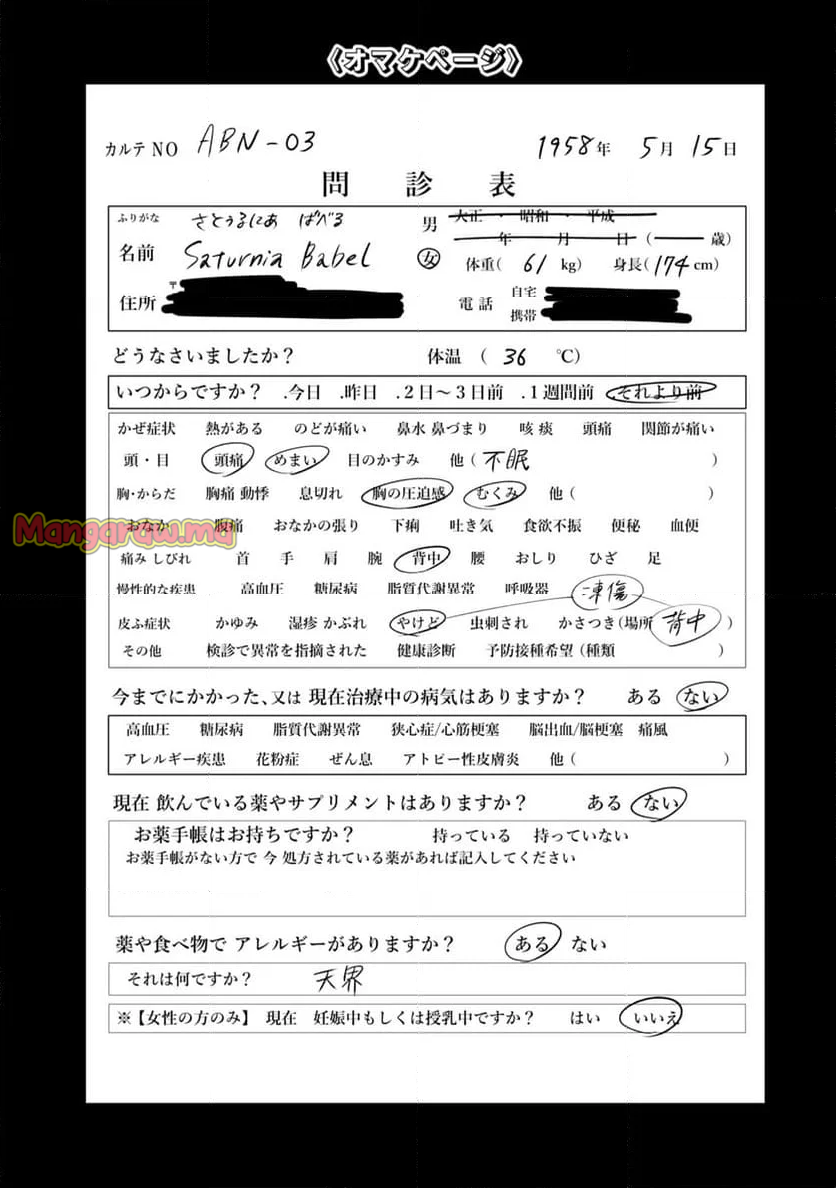 《オマケページ》
カルテ NO ABN-03 1958年 5月 15日
問診表
ふりがな さとぅるにあ ばべる
名前 Saturnia Babel
男 大正・昭和・平成
女 年 月 日 ( 歳)
体重( 61 kg) 身長( 174 cm)
〒
住所
電話 自宅
携帯
どうなさいましたか? 体温 ( 36 ℃)
いつからですか? .今日 .昨日 .2日~3日前 .1週間前 .それより前
かぜ症状 熱がある のどが痛い 鼻水 鼻づまり 咳 痰 頭痛 関節が痛い
頭・目 頭痛 めまい 目のかすみ 他 ( 不眠 )
胸・からだ 胸痛 動悸 息切れ 胸の圧迫感 むくみ 他 ( )
おなか 腹痛 おなかの張り 下痢 吐き気 食欲不振 便秘 血便
Mangaraw.ma
痛み しびれ 首 手 肩 腕 背中 腰 おしり ひざ 足
慢性的な疾患 高血圧 糖尿病 脂質代謝異常 呼吸器 凍傷
皮ふ症状 かゆみ 湿疹 かぶれ やけど 虫刺され かさつき(場所 背中 )
その他 検診で異常を指摘された 健康診断 予防接種希望 (種類 )
今までにかかった、又は 現在治療中の病気はありますか? ある ない
高血圧 糖尿病 脂質代謝異常 狭心症/心筋梗塞 脳出血/脳梗塞 痛風
アレルギー疾患 花粉症 ぜん息 アトピー性皮膚炎 他 ( )
現在 飲んでいる薬やサプリメントはありますか? ある ない
お薬手帳はお持ちですか? 持っている 持っていない
お薬手帳がない方で 今 処方されている薬があれば記入してください
薬や食べ物で アレルギーがありますか? ある ない
それは何ですか? 天界
※【女性の方のみ】 現在 妊娠中もしくは授乳中ですか? はい いいえ